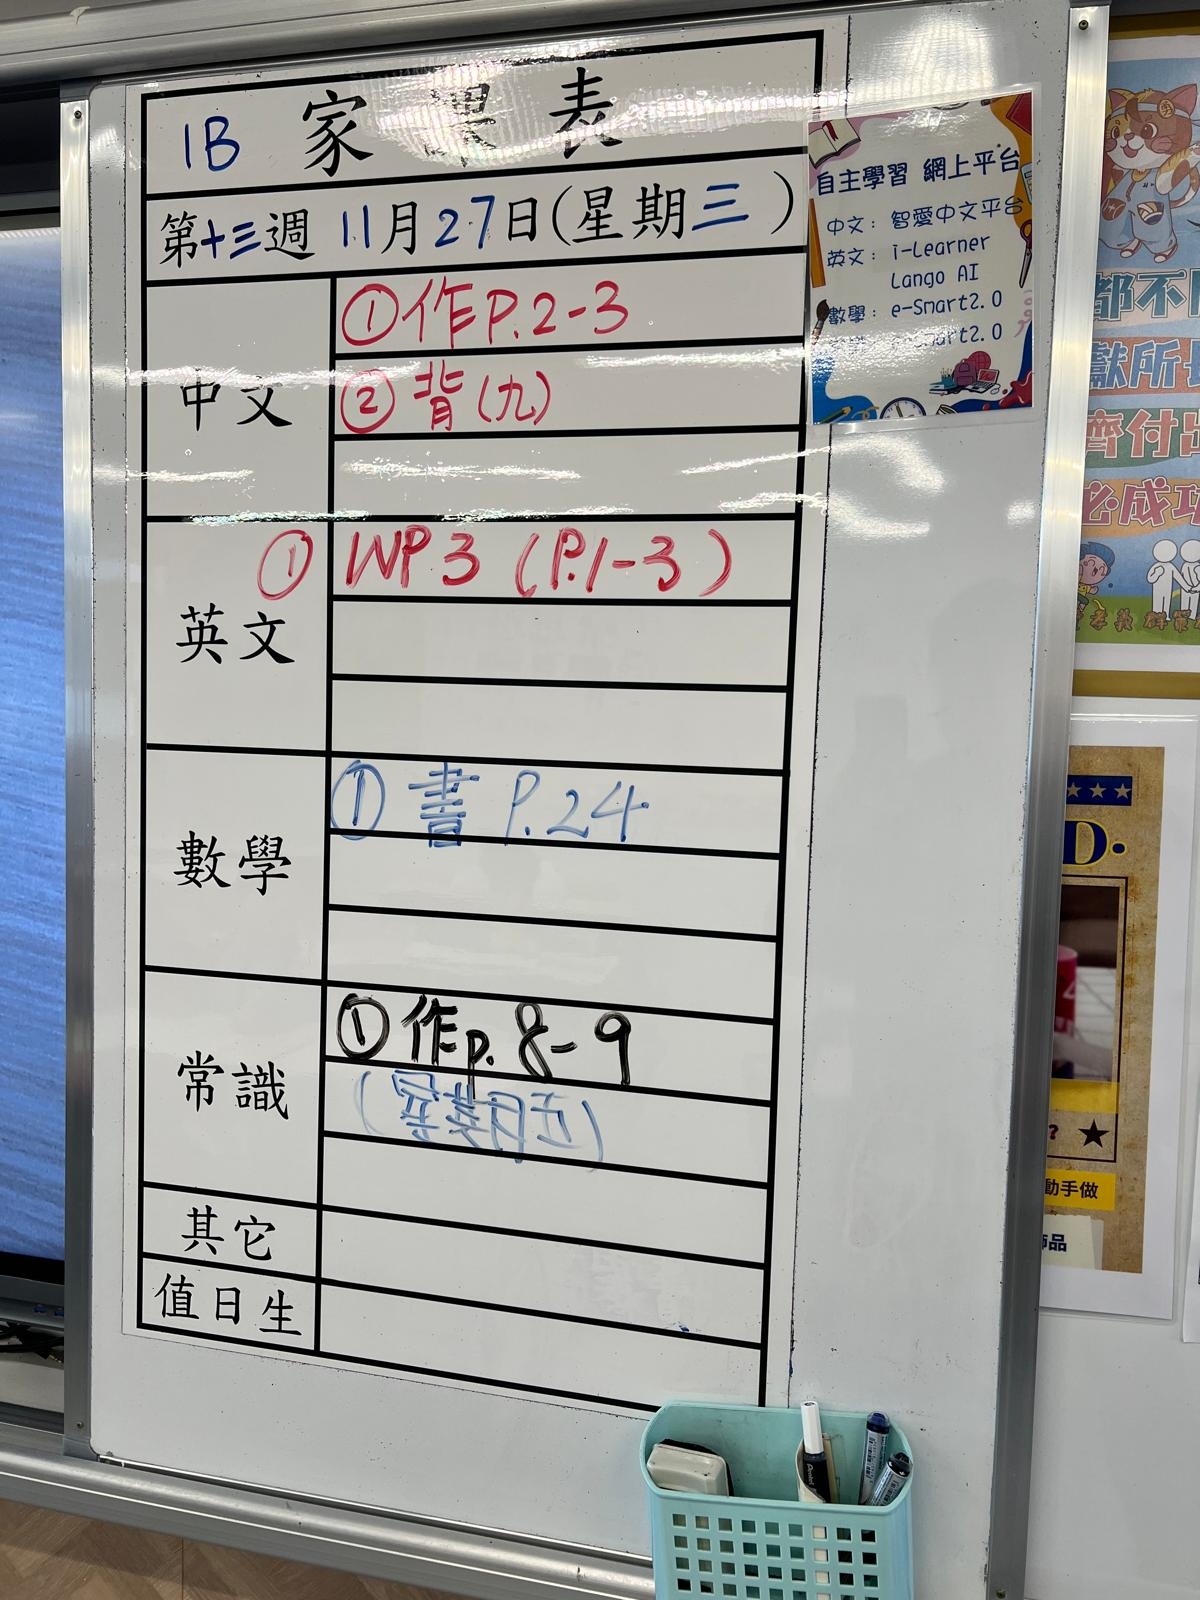 1B 家課表
第十三週 11月27日(星期三)
中文
①作P.2-3
②背(九)
英文
① WP3 (P.1-3)
數學
① 書 P.24
常識
①作p.8-9
其它
值日生
自主學習 網上平台
中文: 智愛中文平台
英文: i-Learner
Lango AI
數學: e-Smart2.0
都不
獻所長
齊付出
必成功
D.
動手做
飾品